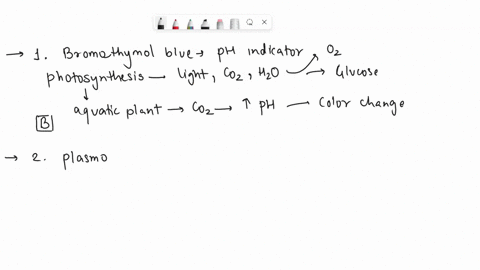 → 1. Bromothymol blue → pH indicator
photosynthesis — light, CO₂, H₂O → O₂ → Glucose
↓
aquatic plant → CO₂ → ↑ pH — Color change
B
→ 2. plasmo